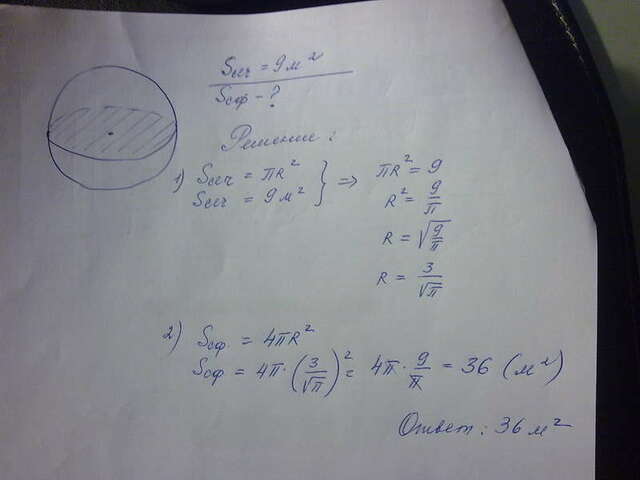 Sсеч = 9 м²
Sсф - ?
Решение:
1) Sсеч = πR²
Sсеч = 9 м² } => πR² = 9
R² = 9/π
R = √(9/π)
R = 3/√π
2) Sсф = 4πR²
Sсф = 4π·(3/√π)² = 4π · 9/π = 36 (м²)
Ответ: 36 м²